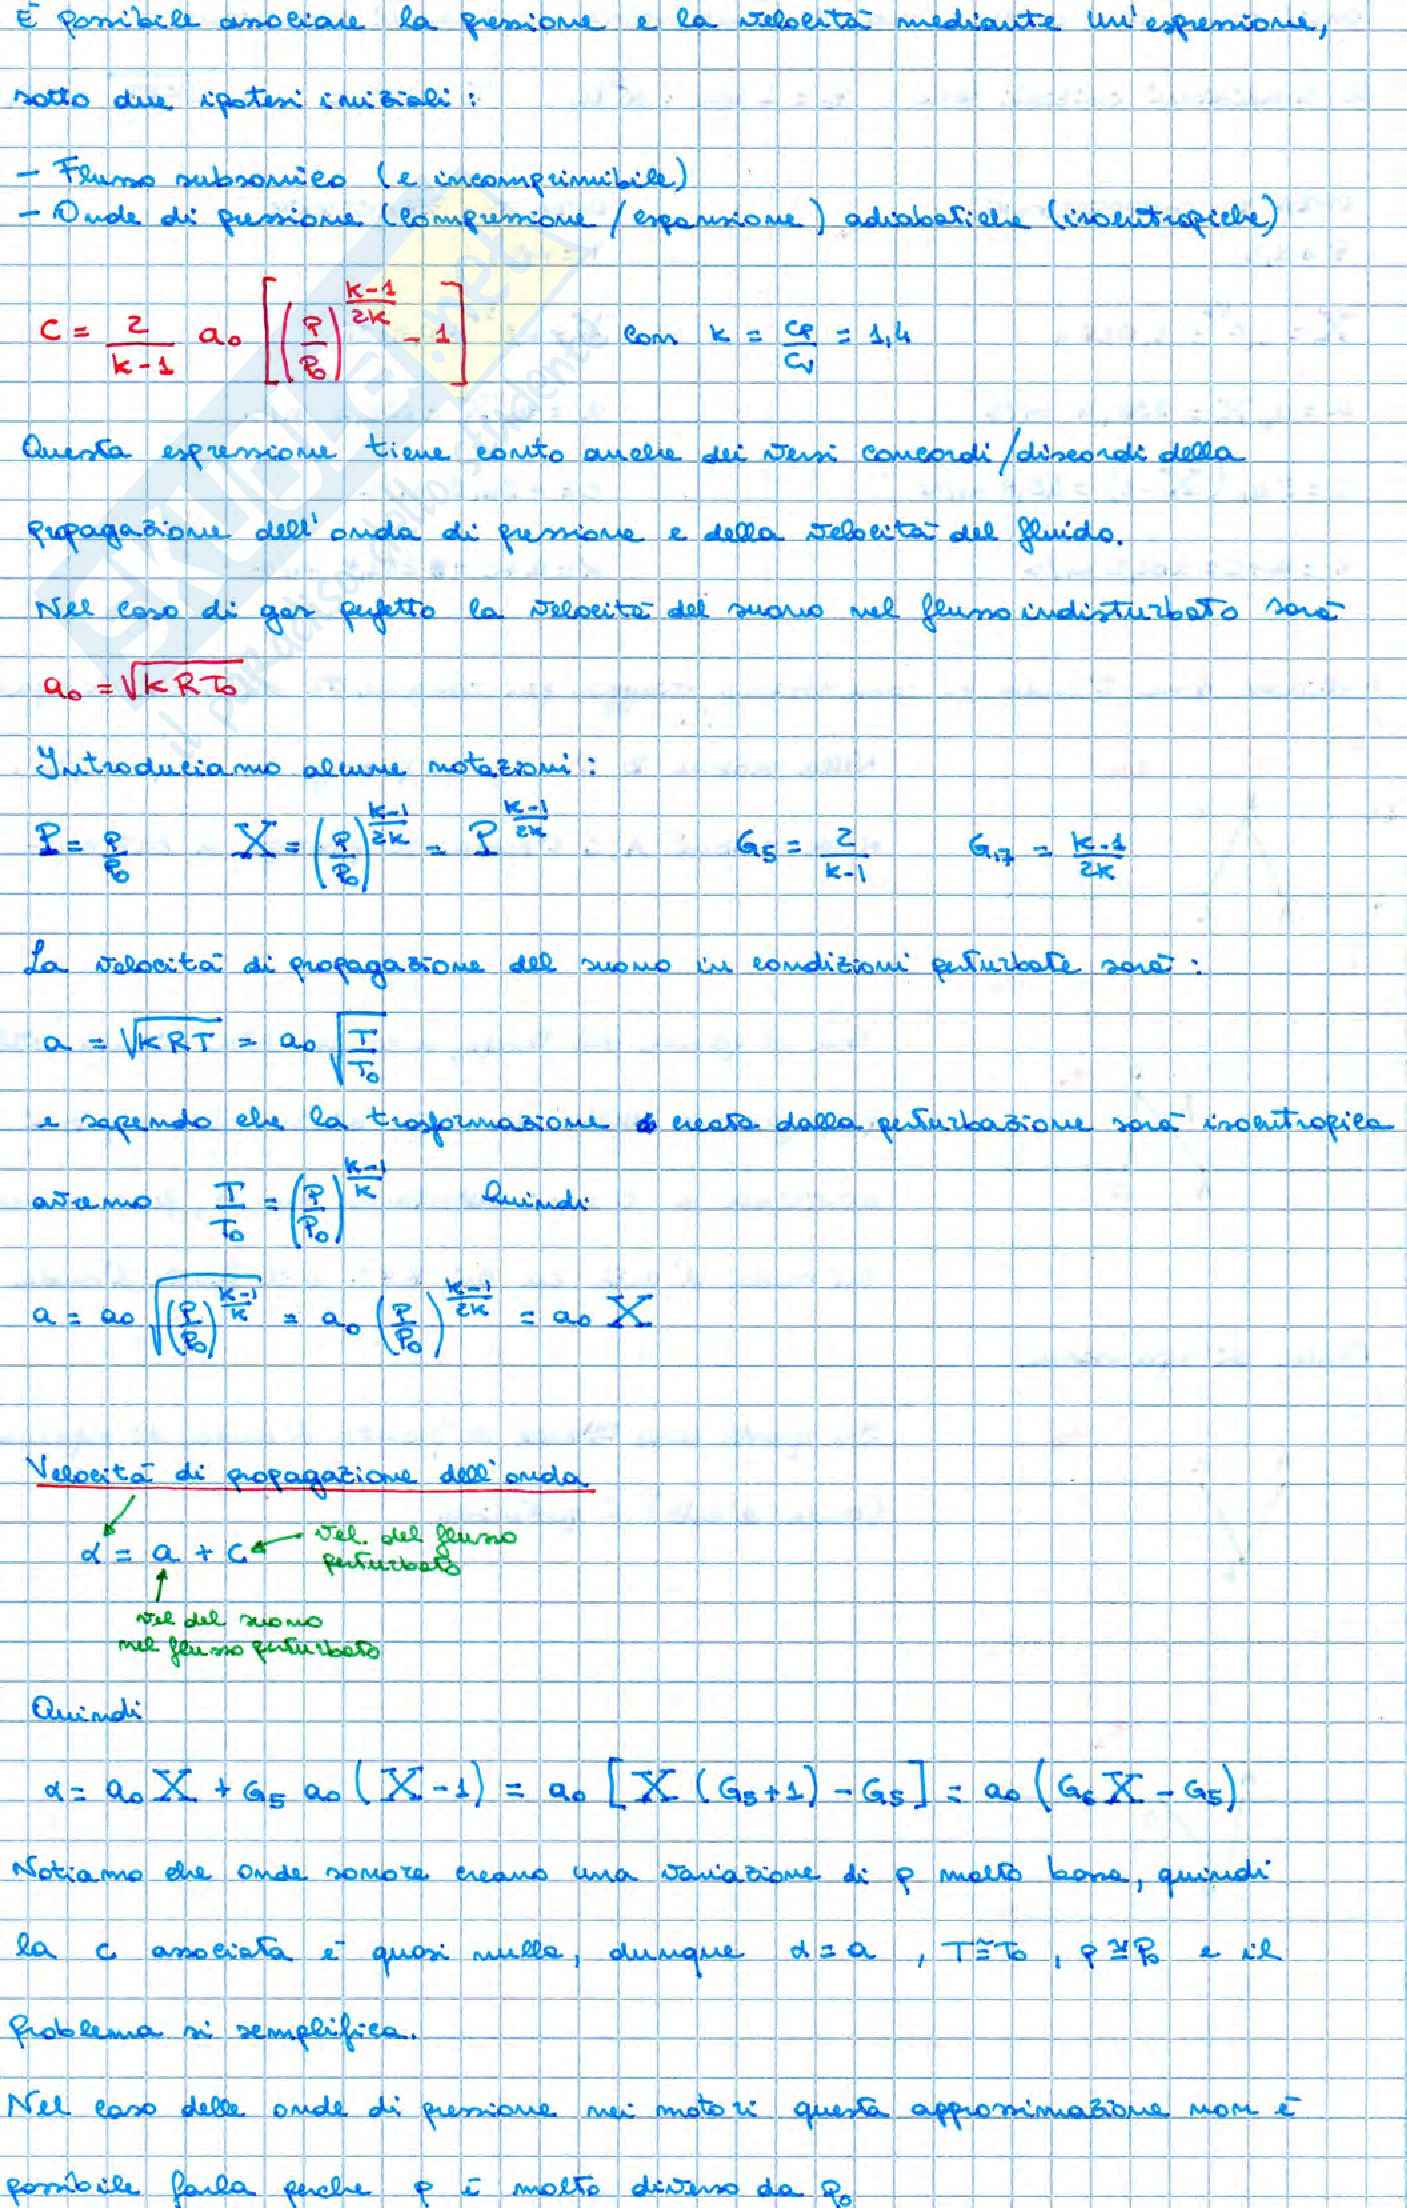 È possibile associare la pressione e la velocità mediante un'espressione,
sotto due ipotesi iniziali:
- Flusso subsonico (e incomprimibile)
- Onde di pressione (compressione/espansione) adiabatiche (isoentropiche)
C = 2/(k-1) a₀ [(P/P₀)^((k-1)/2k) - 1] con k = cp/cv = 1,4
Questa espressione tiene conto anche dei versi concordi/discordi della
propagazione dell'onda di pressione e della velocità del fluido.
Nel caso di gas perfetto la velocità del suono nel flusso indisturbato sarà
a₀ = √(kRT₀)
Introduciamo alcune notazioni:
P = P/P₀ X = (P/P₀)^((k-1)/2k) = P^((k-1)/2k) G₅ = 2/(k-1) G₁₇ = (k-1)/2k
La velocità di propagazione del suono in condizioni perturbate sarà:
a = √(kRT) = a₀ √(T/T₀)
e sapendo che la trasformazione creata dalla perturbazione sarà isoentropica
avremo T/T₀ = (P/P₀)^((k-1)/k) Quindi
a = a₀ √((P/P₀)^((k-1)/k)) = a₀ (P/P₀)^((k-1)/2k) = a₀ X
Velocità di propagazione dell'onda
α = a + c
vel. del flusso
perturbato
vel del suono
nel flusso perturbato
Quindi
α = a₀ X + G₅ a₀ (X - 1) = a₀ [X (G₅+1) - G₅] = a₀ (G₆ X - G₅)
Notiamo che onde sonore creano una variazione di p molto bassa, quindi
la c associata è quasi nulla, dunque α = a, T≅T₀, p≅P₀ e il
problema si semplifica.
Nel caso delle onde di pressione nei motori questa approssimazione non è
possibile farla perche p è molto diverso da P₀
SKUOLA.net
il paradiso dello studente